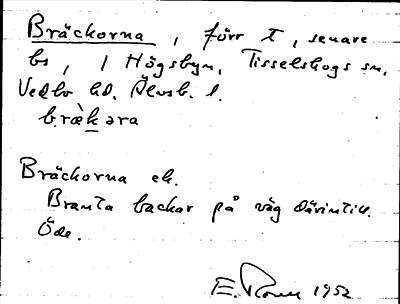 Bräckorna, förr t, senare
bs, i Högsbyn, Tisselskogs sn,
Vedbo hd. Älvsb. l.
bræ̀kəra
Bräckorna ek.
Branta backor på väg därintill.
Öde.
E. 1952